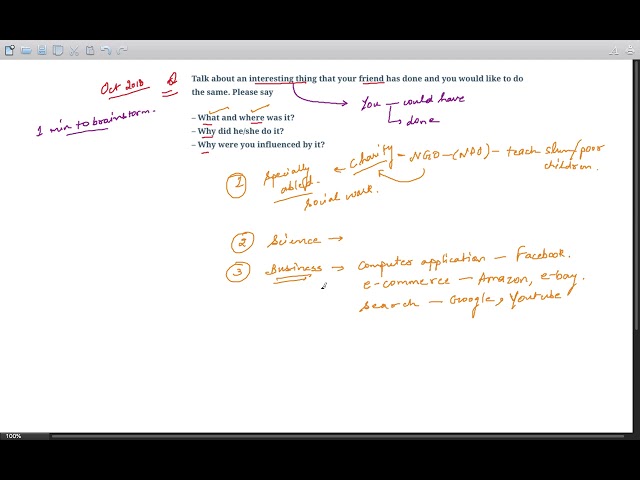 Talk about an interesting thing that your friend has done and you would like to do
the same. Please say
– What and where was it?
– Why did he/she do it?
– Why were you influenced by it?
Oct 2018 Q
1 min to brainstorm.
You – would have
done
1 Specially abled. ← Charity = NGO – (NPO) – teach slum/poor
children.
Social work.
2 Science →
3 Business → Computer application – Facebook.
e-commerce – Amazon, e-bay.
Search – Google, Youtube
100%